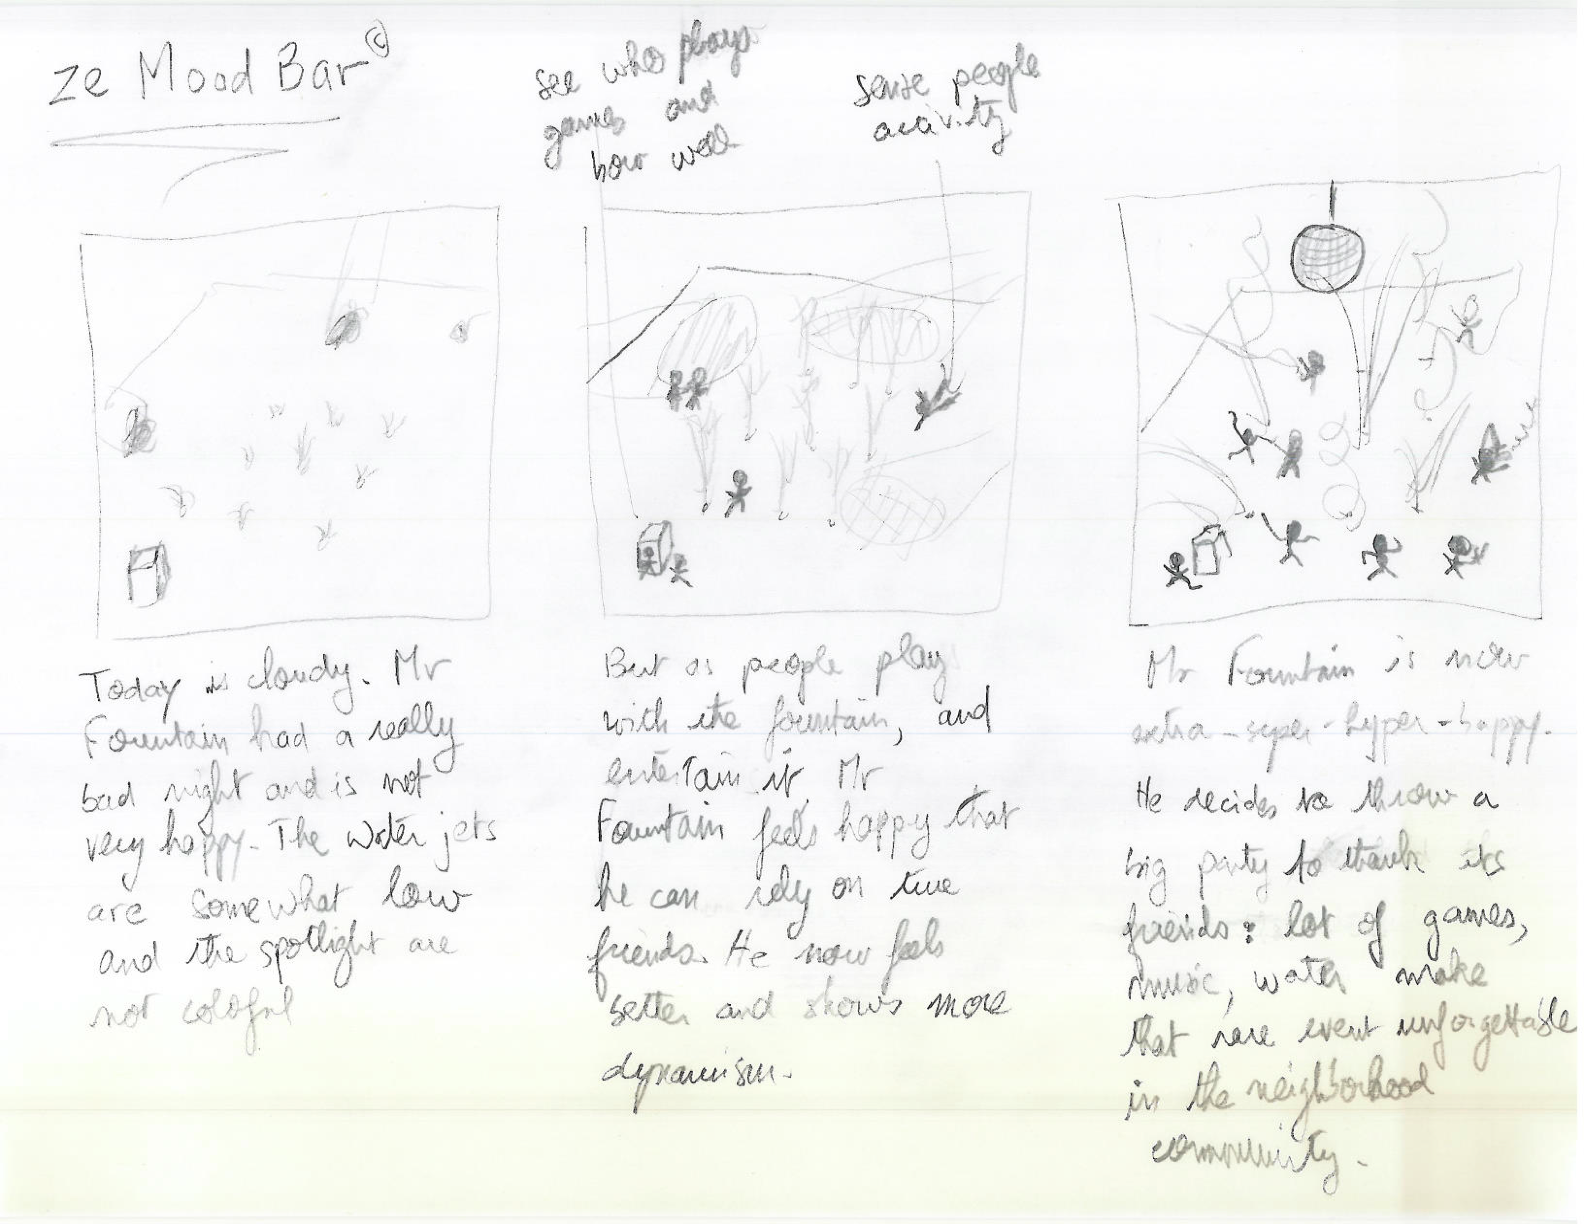 ze Mood Bar ©
see who plays
games and
how well
sense people
activity
Today is cloudy. Mr
Fountain had a really
bad night and is not
very happy. The water jets
are somewhat low
and the spotlight are
not coloful
But as people play
with the fountain, and
entertain it, Mr
Fountain feels happy that
he can rely on true
friends. He now feels
better and shows more
dynamism.
Mr Fountain is now
extra-super-hyper-happy.
He decides to throw a
big party to thank its
friends: lot of games,
music, water make
that rare event unforgettable
in the neighborhood
community.